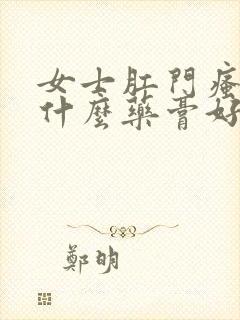 女士肛門瘙
什麼藥膏好
鄭明